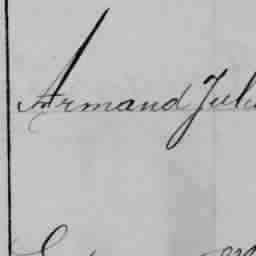 Armand Jul